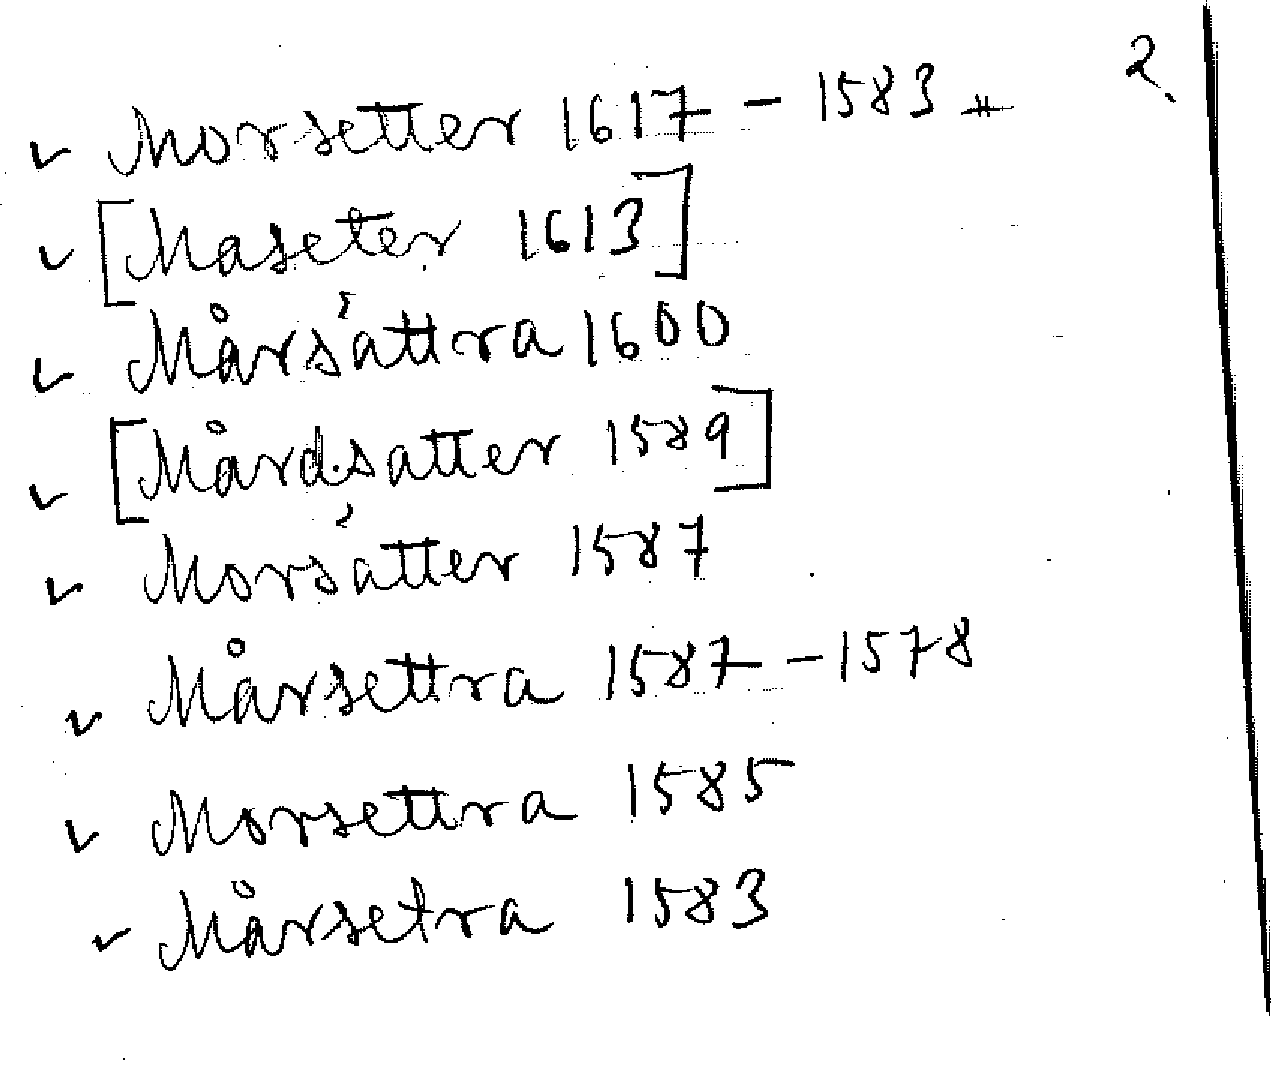 2.
✓ Morsetter 1617 - 1583 #
✓ [Maseter 1613]
✓ Mårsättra 1600
✓ [Mårdsatter 1589]
✓ Morsätter 1587
✓ Mårsettra 1587 - 1578
✓ Morsettra 1585
✓ Mårsetra 1583